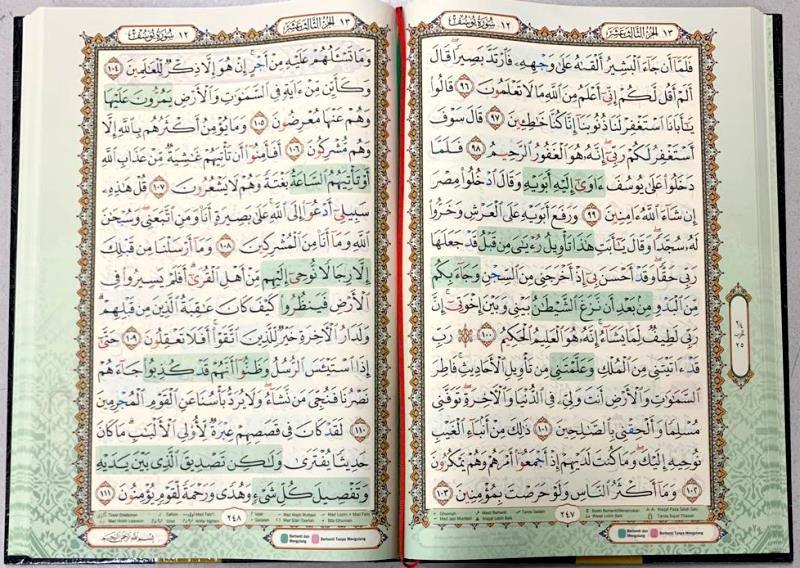 ١٣ الجزء الثالث عشر
سورة يوسف ١٢
فَلَمَّآ أَن جَآءَ ٱلْبَشِيرُ أَلْقَىٰهُ عَلَىٰ وَجْهِهِۦ فَٱرْتَدَّ بَصِيرًا ۖ قَالَ
أَلَمْ أَقُل لَّكُمْ إِنِّىٓ أَعْلَمُ مِنَ ٱللَّهِ مَا لَا تَعْلَمُونَ ٩٦ قَالُوا۟
يَـٰٓأَبَانَا ٱسْتَغْفِرْ لَنَا ذُنُوبَنَآ إِنَّا كُنَّا خَـٰطِـِٔينَ ٩٧ قَالَ سَوْفَ
أَسْتَغْفِرُ لَكُمْ رَبِّىٓ ۖ إِنَّهُۥ هُوَ ٱلْغَفُورُ ٱلرَّحِيمُ ٩٨ فَلَمَّا
دَخَلُوا۟ عَلَىٰ يُوسُفَ ءَاوَىٰٓ إِلَيْهِ أَبَوَيْهِ وَقَالَ ٱدْخُلُوا۟ مِصْرَ
إِن شَآءَ ٱللَّهُ ءَامِنِينَ ٩٩ وَرَفَعَ أَبَوَيْهِ عَلَى ٱلْعَرْشِ وَخَرُّوا۟
لَهُۥ سُجَّدًا ۖ وَقَالَ يَـٰٓأَبَتِ هَـٰذَا تَأْوِيلُ رُءْيَـٰىَ مِن قَبْلُ قَدْ جَعَلَهَا
رَبِّى حَقًّا ۖ وَقَدْ أَحْسَنَ بِىٓ إِذْ أَخْرَجَنِى مِنَ ٱلسِّجْنِ وَجَآءَ بِكُم
مِّنَ ٱلْبَدْوِ مِنۢ بَعْدِ أَن نَّزَغَ ٱلشَّيْطَـٰنُ بَيْنِى وَبَيْنَ إِخْوَتِىٓ ۚ إِنَّ
رَبِّى لَطِيفٌ لِّمَا يَشَآءُ ۚ إِنَّهُۥ هُوَ ٱلْعَلِيمُ ٱلْحَكِيمُ ١٠٠ ۞ رَبِّ
قَدْ ءَاتَيْتَنِى مِنَ ٱلْمُلْكِ وَعَلَّمْتَنِى مِن تَأْوِيلِ ٱلْأَحَادِيثِ ۚ فَاطِرَ
ٱلسَّمَـٰوَٰتِ وَٱلْأَرْضِ أَنتَ وَلِىِّۦ فِى ٱلدُّنْيَا وَٱلْـَٔاخِرَةِ ۖ تَوَفَّنِى
مُسْلِمًا وَأَلْحِقْنِى بِٱلصَّـٰلِحِينَ ١٠١ ذَٰلِكَ مِنْ أَنۢبَآءِ ٱلْغَيْبِ
نُوحِيهِ إِلَيْكَ ۖ وَمَا كُنتَ لَدَيْهِمْ إِذْ أَجْمَعُوٓا۟ أَمْرَهُمْ وَهُمْ يَمْكُرُونَ
١٠٢ وَمَآ أَكْثَرُ ٱلنَّاسِ وَلَوْ حَرَصْتَ بِمُؤْمِنِينَ ١٠٣
٢٤٧
Berhenti dan Mengulang
Berhenti Tanpa Mengulang
١٣ الجزء الثالث عشر
سورة يوسف ١٢
وَمَا تَسْـَٔلُهُمْ عَلَيْهِ مِنْ أَجْرٍ ۚ إِنْ هُوَ إِلَّا ذِكْرٌ لِّلْعَـٰلَمِينَ ١٠٤
وَكَأَيِّن مِّنْ ءَايَةٍ فِى ٱلسَّمَـٰوَٰتِ وَٱلْأَرْضِ يَمُرُّونَ عَلَيْهَا
وَهُمْ عَنْهَا مُعْرِضُونَ ١٠٥ وَمَا يُؤْمِنُ أَكْثَرُهُم بِٱللَّهِ إِلَّا
وَهُم مُّشْرِكُونَ ١٠٦ أَفَأَمِنُوٓا۟ أَن تَأْتِيَهُمْ غَـٰشِيَةٌ مِّنْ عَذَابِ ٱللَّهِ
أَوْ تَأْتِيَهُمُ ٱلسَّاعَةُ بَغْتَةً وَهُمْ لَا يَشْعُرُونَ ١٠٧ قُلْ هَـٰذِهِۦ
سَبِيلِىٓ أَدْعُوٓا۟ إِلَى ٱللَّهِ ۚ عَلَىٰ بَصِيرَةٍ أَنَا۠ وَمَنِ ٱتَّبَعَنِى ۖ وَسُبْحَـٰنَ
ٱللَّهِ وَمَآ أَنَا۠ مِنَ ٱلْمُشْرِكِينَ ١٠٨ وَمَآ أَرْسَلْنَا مِن قَبْلِكَ
إِلَّا رِجَالًا نُّوحِىٓ إِلَيْهِم مِّنْ أَهْلِ ٱلْقُرَىٰٓ ۗ أَفَلَمْ يَسِيرُوا۟ فِى
ٱلْأَرْضِ فَيَنظُرُوا۟ كَيْفَ كَانَ عَـٰقِبَةُ ٱلَّذِينَ مِن قَبْلِهِمْ ۗ
وَلَدَارُ ٱلْـَٔاخِرَةِ خَيْرٌ لِّلَّذِينَ ٱتَّقَوْا۟ ۗ أَفَلَا تَعْقِلُونَ ١٠٩ حَتَّىٰٓ
إِذَا ٱسْتَيْـَٔسَ ٱلرُّسُلُ وَظَنُّوٓا۟ أَنَّهُمْ قَدْ كُذِبُوا۟ جَآءَهُمْ
نَصْرُنَا فَنُجِّىَ مَن نَّشَآءُ ۖ وَلَا يُرَدُّ بَأْسُنَا عَنِ ٱلْقَوْمِ ٱلْمُجْرِمِينَ
١١٠ لَقَدْ كَانَ فِى قَصَصِهِمْ عِبْرَةٌ لِّأُو۟لِى ٱلْأَلْبَـٰبِ ۗ مَا كَانَ
حَدِيثًا يُفْتَرَىٰ وَلَـٰكِن تَصْدِيقَ ٱلَّذِى بَيْنَ يَدَيْهِ
وَتَفْصِيلَ كُلِّ شَىْءٍ وَهُدًى وَرَحْمَةً لِّقَوْمٍ يُؤْمِنُونَ ١١١
٢٤٨
Berhenti dan Mengulang
Berhenti Tanpa Mengulang